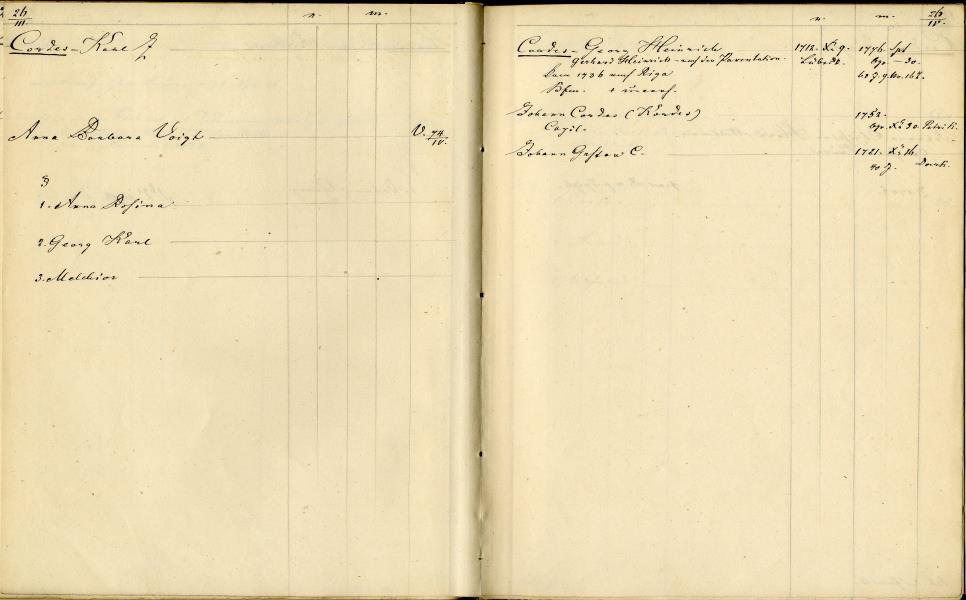 26
III.
n.
m.
Cordes - Karl J
Anna Barbara Voigt
V. 74
IV.
3
1. Anna Rosina
2. Georg Karl
3. Melchior
n.
m.
26
IV.
Cordes - Georg Heinrich 1712. 9. 1776. Spt
Gerhard Heinrich - auf der Parentation. Lübeck. 30.
kam 1736 nach Riga 63 J. 9 M. 16 T.
Johann Cordes (Kordes) 1752.
30. Petrik.
Johann Gustav C. 1721. 16.
40 J. Domk.